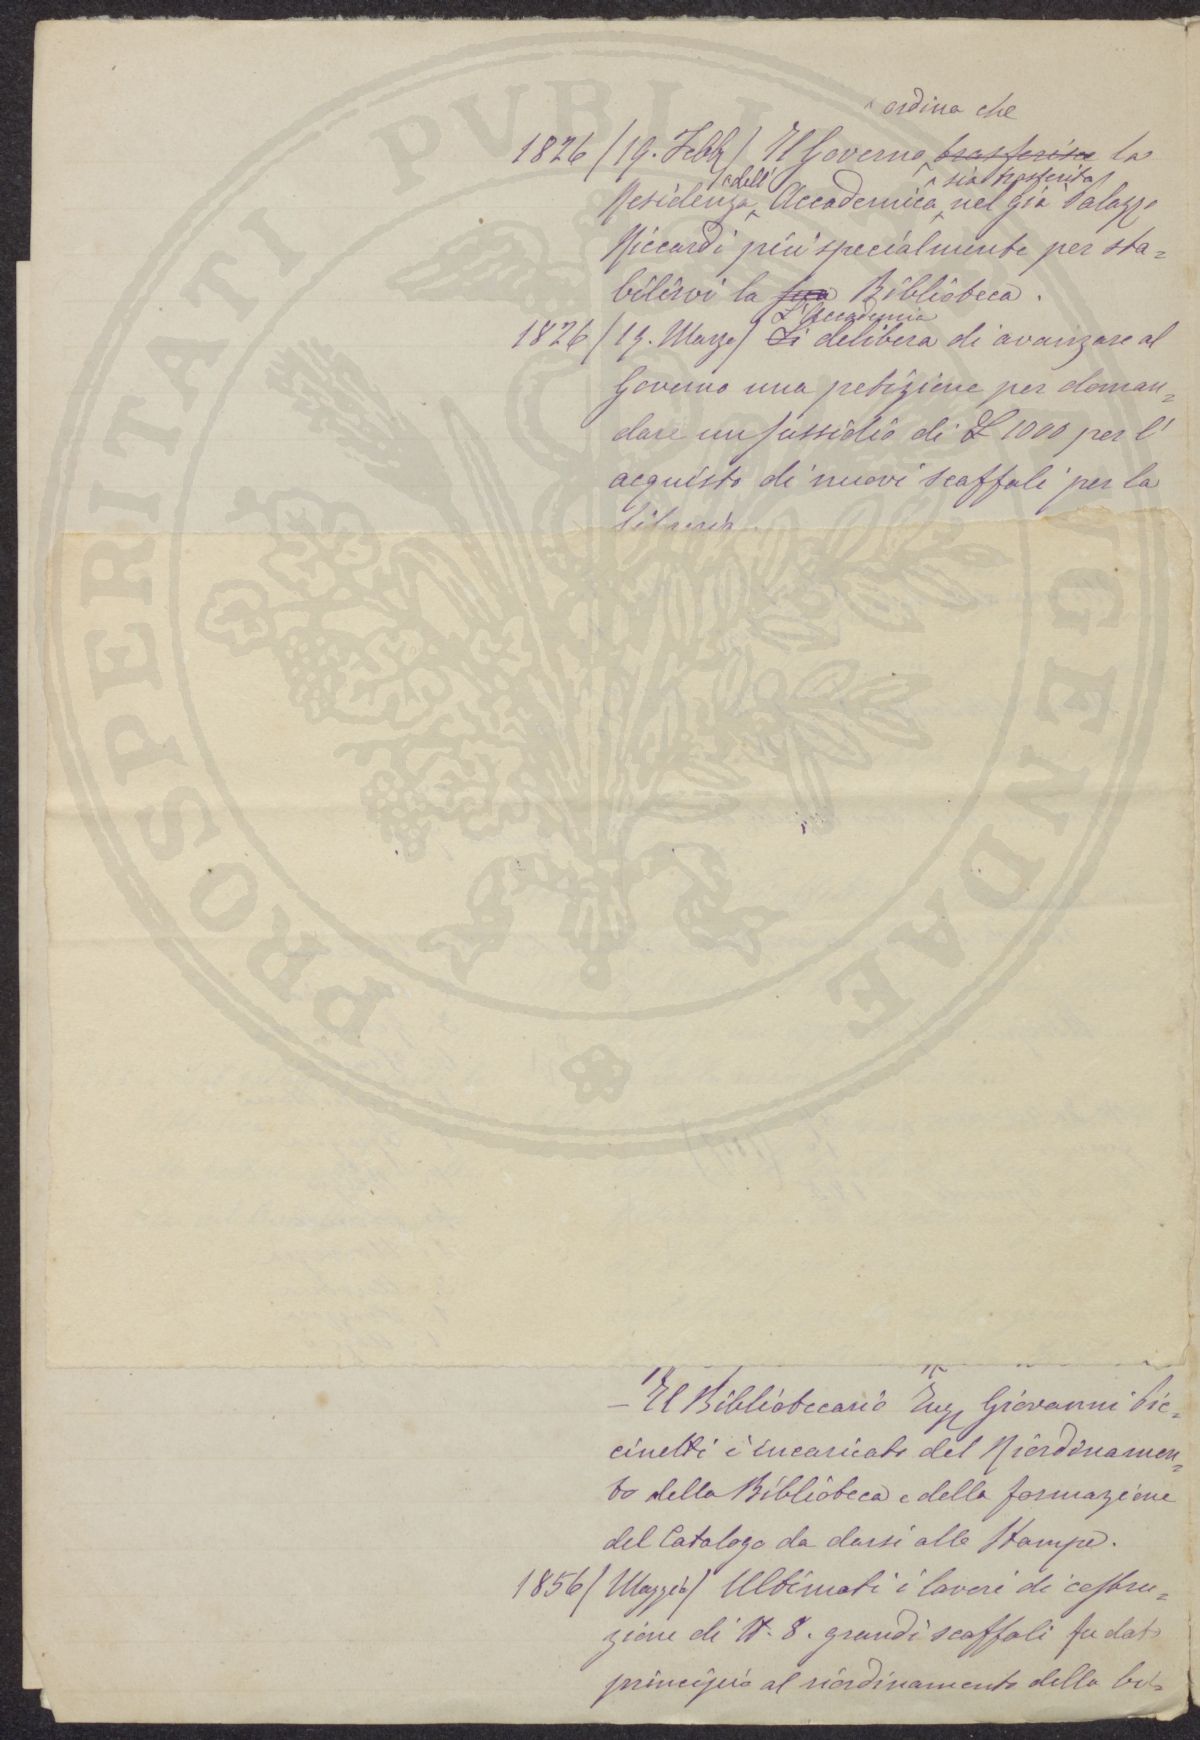 ordina che
1826 / 19. Febb / Il Governo trasferisce la
sia trasferita
Residenza dell' Accademica nel già Palazzo
Riccardi più specialmente per sta=
bilirvi la sua Biblioteca.
L'Accademia
1826 / 19. Marzo / Si delibera di avanzare al
Governo una petizione per doman=
dare un sussidio di £ 1000 per l'
acquisto di nuovi scaffali per la
libreria.
— Il Bibliotecario Giovanni Pic=
cinetti è incaricato del Riordinamen=
to della Biblioteca e della formazione
del Catalogo da darsi alle Stampe.
1856 / Maggio / Ultimati i lavori di costru=
zione di N. 8. grandi scaffali fu dato
principio al riordinamento della bi=
PROSPERITATI PVBLI GENDAE